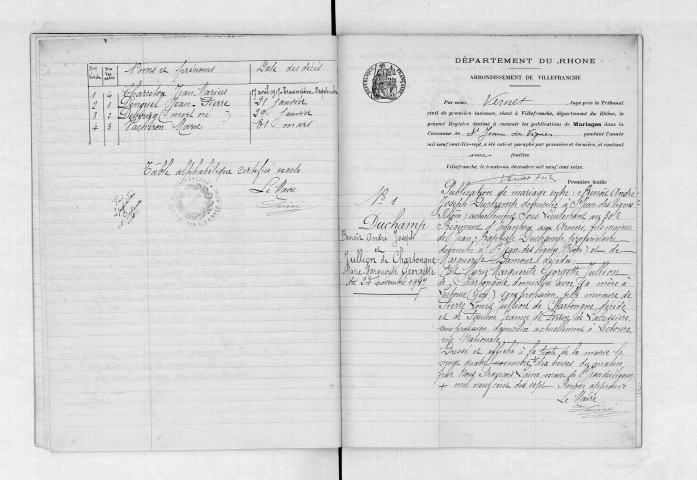 Noms et prénoms
Date des décès
1 4 Charretou Jean Marius
2 1 Jean Pierre 21 janvier
3 2 Debourg (mort né) 29 janvier
4 3 Vacheron Marie 31 mars
Table alphabétique certifiée exacte
Le Maire
DÉPARTEMENT DU RHONE
ARRONDISSEMENT DE VILLEFRANCHE
Par nous, Vernet, Juge près le Tribunal
civil de première instance, séant à Villefranche, département du Rhône, le
présent Registre destiné à recevoir les publications de Mariages dans la
Commune de St Jean des Vignes pendant l'année
mil neuf cent dix-sept, a été coté et paraphé par première et dernière, et contient
feuillets.
Villefranche, le trente-un décembre mil neuf cent seize.
Première feuille
No 1
Duchamp
Benoît André Joseph
et
Jullion de Chartongne
Marie Marguerite Georgette
du 24 novembre 1917
Publication de mariage entre : Benoît André
Joseph Duchamp domicilié à St Jean des Vignes
(Rhône) actuellement Sous Lieutenant au 30e
Régiment d'Infanterie aux Armées, fils majeur
de Jean Baptiste Duchamp, propriétaire
domicilié à St Jean des Vignes (Rhône) et de
Marguerite décédée
Et Marie Marguerite Georgette Jullion
de Chartongne domiciliée avec sa mère à
Lectoure (Gers) sans profession, fille mineure de
Pierre Louis Jullion de Chartongne décédé
et de Pauline Jeanne de
sans profession, domiciliée actuellement à Lectoure
rue Nationale
Dressé et affiché à la porte de la mairie le
vingt quatre novembre + dix heures du matin
par Nous François maire de St Jean des Vignes
+ mil neuf cent dix sept Renvoi approuvé
Le Maire